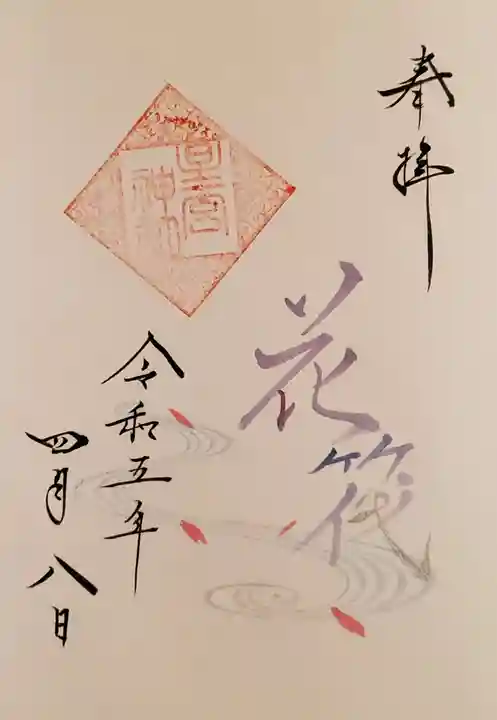 奉拝
花筏
皇宮
神社
令和五年
四月八日